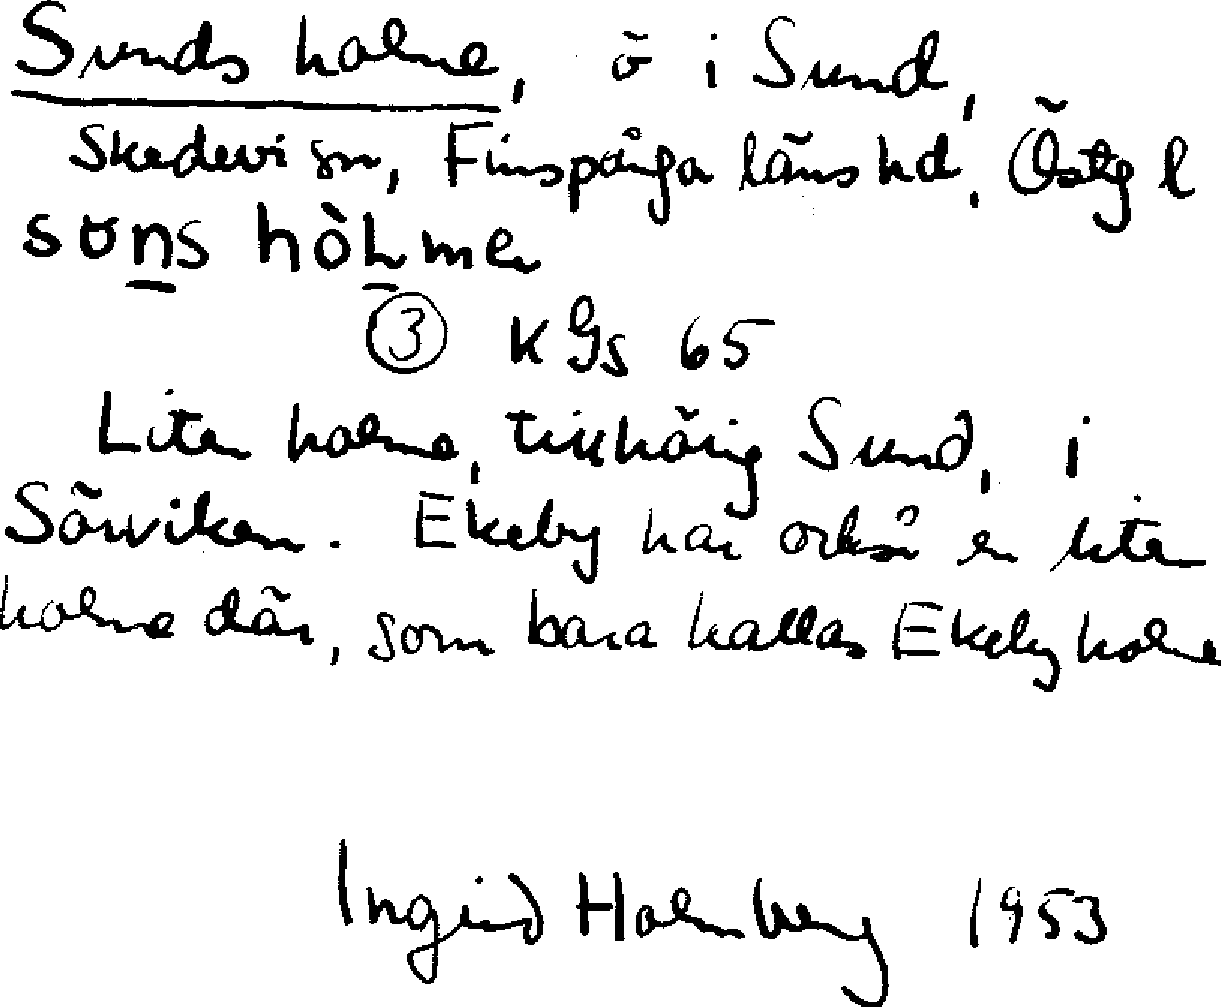 Sunds holme, ö i Sund,
Skedevi sn, Finspånga läns hd, Östg l
sɷns hòlmen
③ K Gs 65
Liten holme, tillhörig Sund, i
Sörviken. Ekeby har också en liten
holme där, som bara kallas Ekeby holme
Ingrid Holmberg 1953